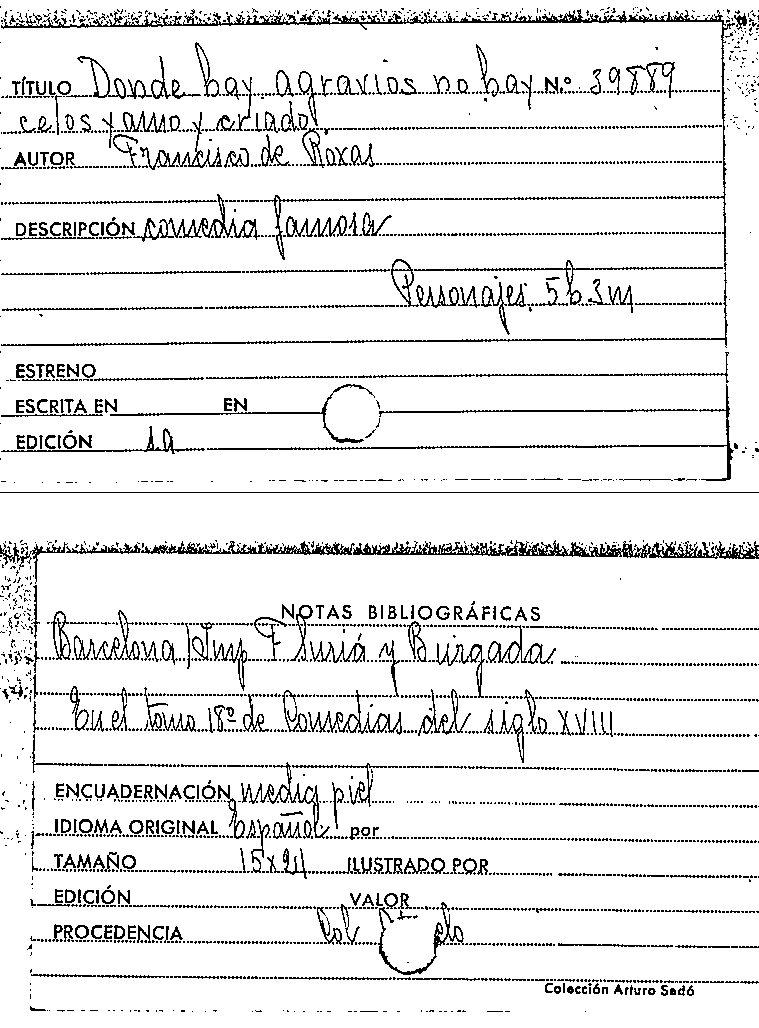 TÍTULO Donde hay agravios no hay N.º 39889
celos y amo y criado!
AUTOR Francisco de Roxas
DESCRIPCIÓN comedia famosa
Personajes. 5h.3m
ESTRENO
ESCRITA EN EN
EDICIÓN s.a
NOTAS BIBLIOGRÁFICAS
Barcelona/Imp F Suriá y Burgada
En el tomo 18º de Comedias del siglo XVIII
ENCUADERNACIÓN media piel
IDIOMA ORIGINAL Español por
TAMAÑO 15x21 ILUSTRADO POR
EDICIÓN VALOR
PROCEDENCIA Col
Colección Arturo Sedó